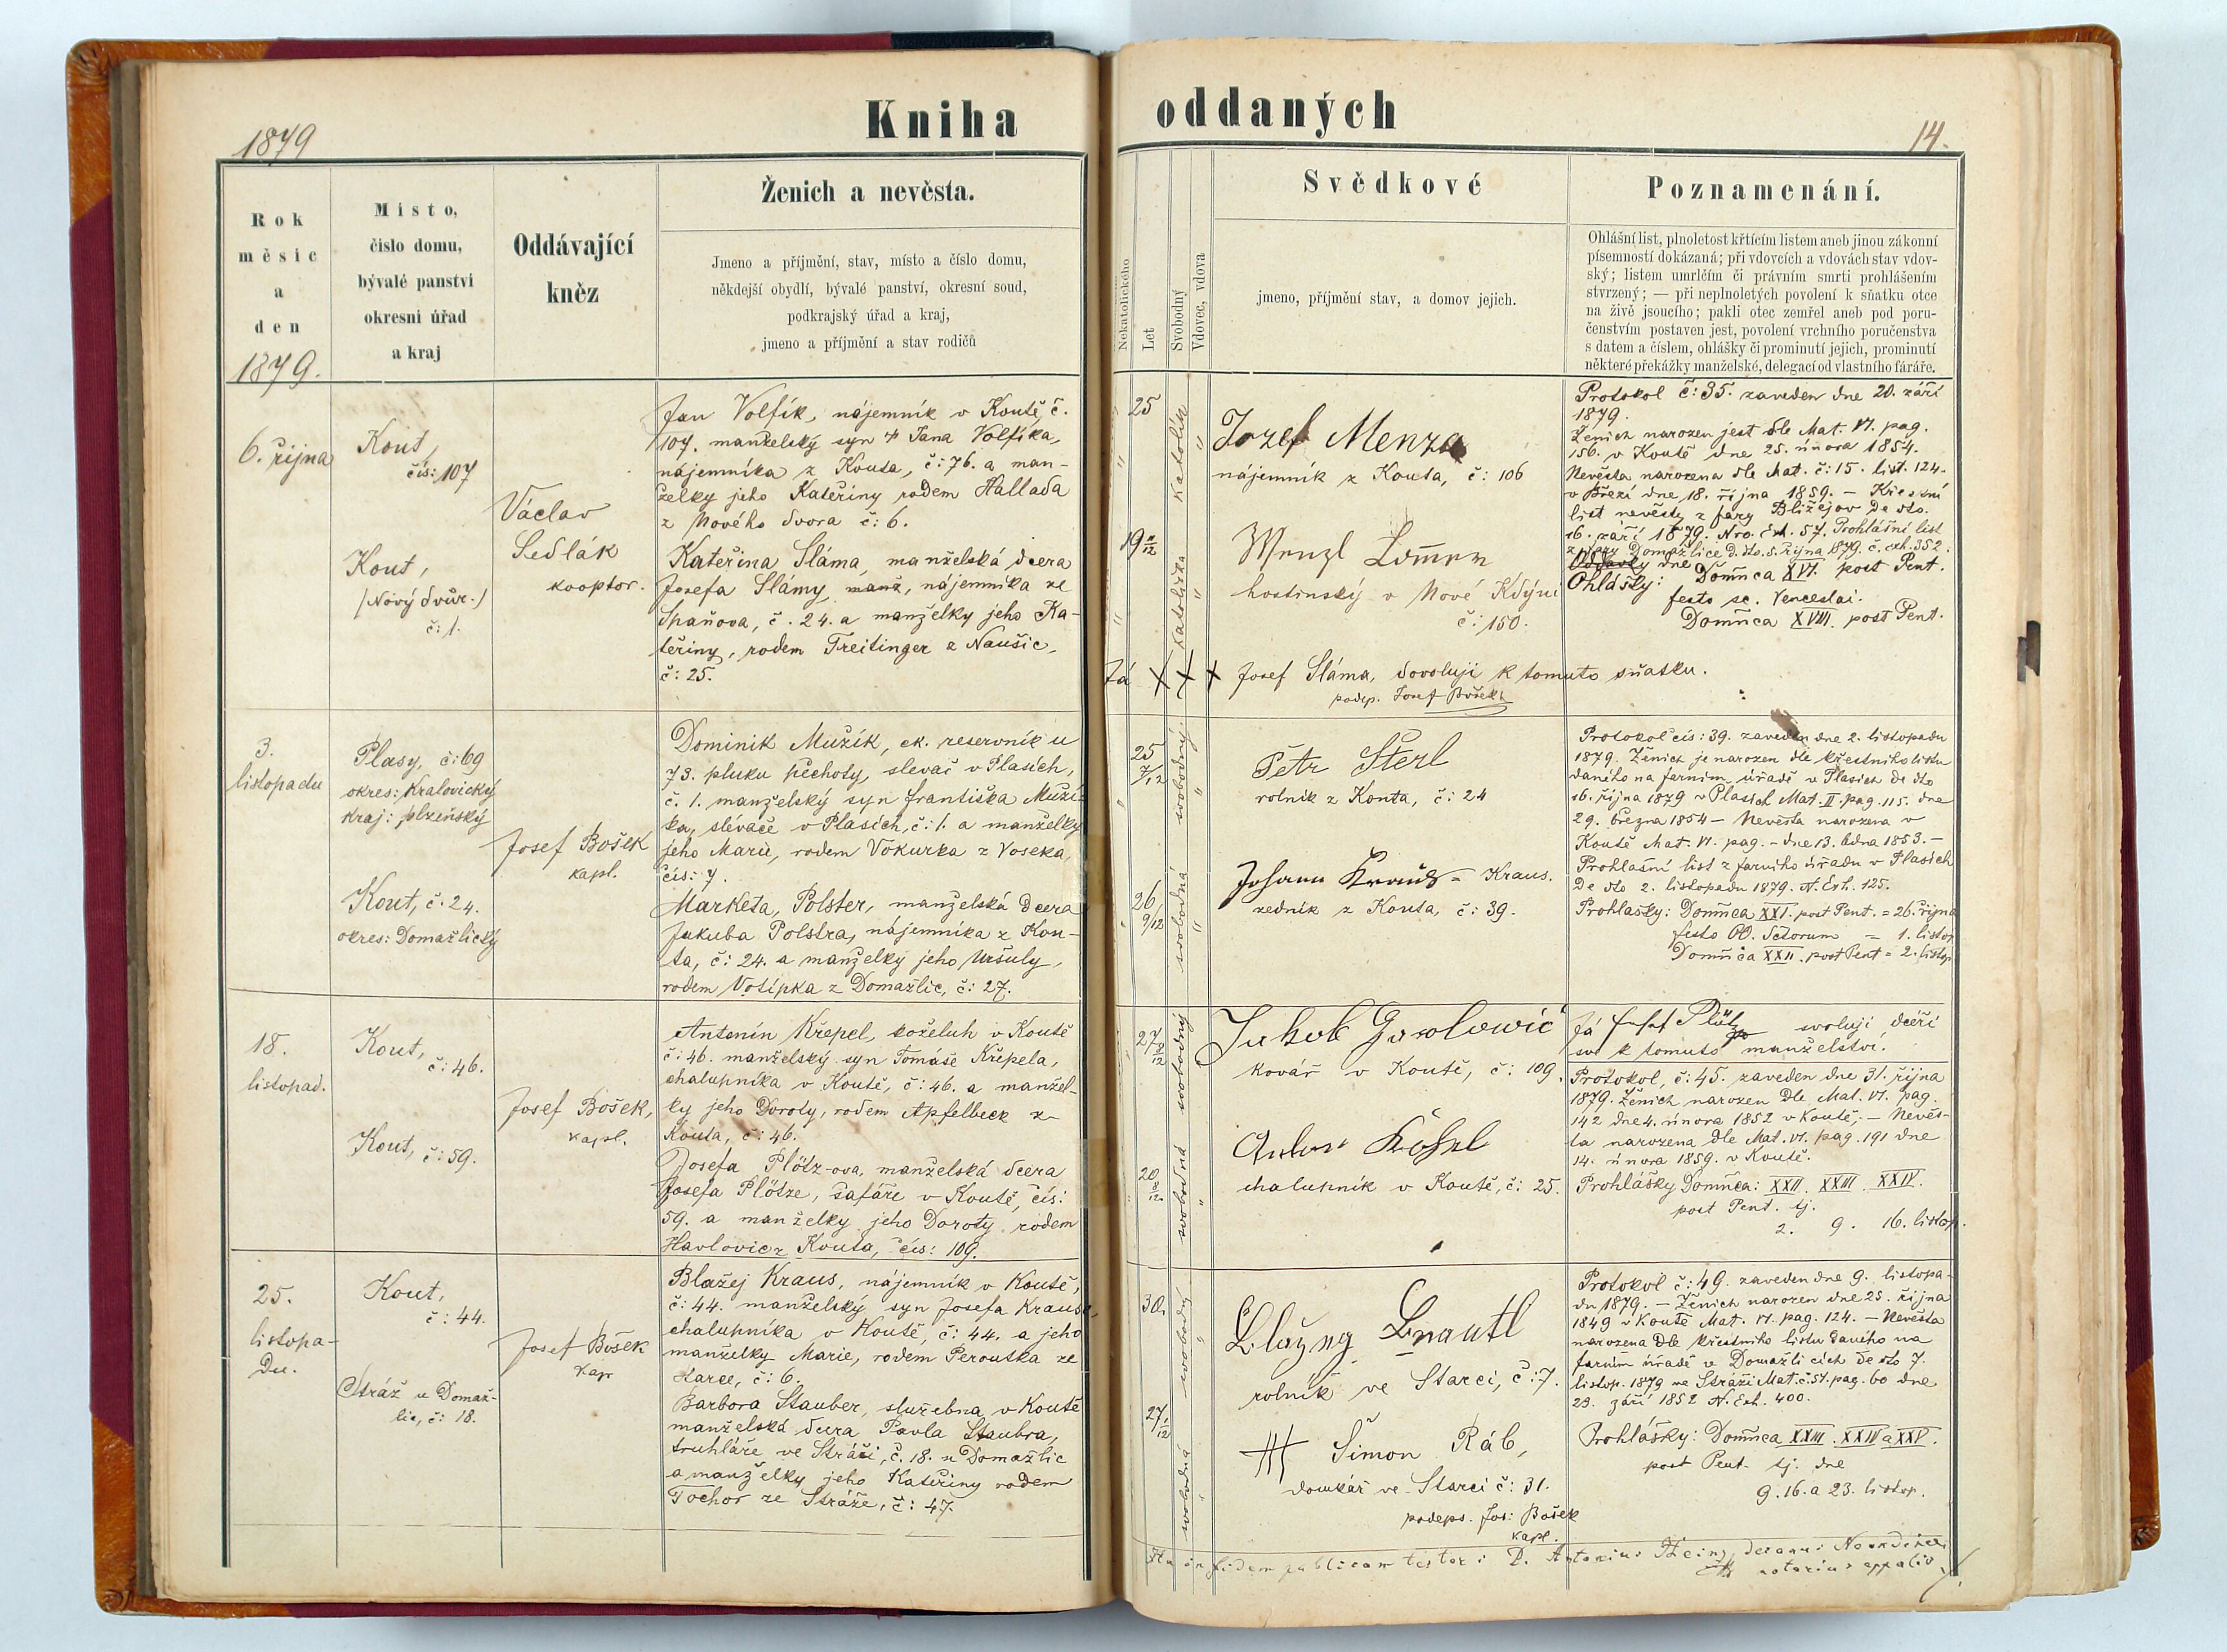 1879
Kniha
oddaných
14.
Rok
měsíc
a
den
1879.
Místo,
číslo domu,
bývalé panství
okresní úřad
a kraj
Oddávající
kněz
Ženich a nevěsta.
Jmeno a příjmění, stav, místo a číslo domu,
někdejší obydlí, bývalé panství, okresní soud,
podkrajský úřad a kraj,
jmeno a příjmění a stav rodičů
Nekatolického
Let
Svobodný
Vdovec, vdova
Svědkové
jmeno, příjmění stav, a domov jejich.
Poznamenání.
Ohlášní list, plnoletost křtícím listem aneb jinou zákonní
písemností dokázaná; při vdovcích a vdovách stav vdov-
ský; listem umrlčím či právním smrti prohlášením
stvrzený; — při neplnoletých povolení k sňatku otce
na živě jsoucího; pakli otec zemřel aneb pod poru-
čenstvím postaven jest, povolení vrchního poručenstva
s datem a číslem, ohlášky či prominutí jejich, prominutí
některé překážky manželské, delegací od vlastního faráře.
6. října
Kout,
čís: 107
Kout,
/Nový dvůr./
č: 1.
Václav
Sedlák
kooptor.
Jan Volfík, nájemník v Koutě, č.
107. manželský syn † Jana Volfíka,
nájemníka z Kouta, č: 76. a man-
želky jeho Kateřiny rodem Hallada
z Nového dvora č: 6.
Kateřina Sláma, manželská dcera
Josefa Slámy, nájemníka ze
Spaňova, č. 24. a manželky jeho Ka-
teřiny, rodem Treitinger z Naušic,
č: 25.
25
katolík
19 11/12
katolička
Jozef Menza
nájemník z Kouta, č: 106
Wenzl
hostinský v Nové Kdýni
č: 150.
Já X X X Josef Sláma, dovoluji k tomuto sňatku.
podep. Josef Bošek
Protokol č: 35. zaveden dne 20. září
1879.
Ženich narozen jest dle Mat. VI. pag.
156. v Koutě dne 25. února 1854.
Nevěsta narozena dle Mat. č: 15. list. 124.
v Březí dne 18. října 1859. — Křestní
list nevěsty z fary Blížejov de dto.
16. září 1879. Nro. Exh. 57. Prohlášní list
z fary Domažlice d. dto. 5. října 1879. č. exh. 352.
Ohlášky: Domnca XVI. post Pent.
festo sc. Venceslai.
Domnca XVIII. post Pent.
3.
listopadu
Plasy, č: 69
okres: Kralovický
kraj: plzeňský
Kout, č. 24.
okres: Domažlický
Josef Bošek
kapl.
Dominik Mužík, ck. reservník u
73. pluku pěchoty, slevač v Plasích,
č. 1. manželský syn Františka Muží-
ka, slévače v Plasích, č: 1. a manželky
jeho Marie, rodem Vokurka z Voseka,
čís: 7.
Marketa, Polster, manželská dcera
Jakuba Polstra, nájemníka z Kou-
ta, č: 24. a manželky jeho Uršuly,
rodem Votípka z Domažlic, č: 27.
25 7/12
svobodný
26 9/12
svobodná
Petr Šterl
rolník z Kouta, č: 24
Johann Krauß = Kraus.
zedník z Kouta, č: 39.
Protokol čís: 39. zaveden dne 2. listopadu
1879. Ženich je narozen dle křestního listu
daného na farním úřadě v Plasích de dto
16. října 1879 v Plasích Mat. II. pag. 115. dne
29. března 1854 — Nevěsta narozena v
Koutě Mat. VI. pag. - dne 13. ledna 1853. —
Prohlašní list z farního úřadu v Plasích
de dto 2. listopadu 1879. N. Exh. 125.
Prohlašky: Domnca XXI. post Pent. = 26. října
festo OO. Sctorum = 1. listop
Domnica XXII. post Pent = 2. listop
18.
listopad.
Kout,
č: 46.
Kout, č: 59.
Josef Bošek,
kapl.
Antonín Křepel, koželuh v Koutě
č: 46. manželský syn Tomáše Křepela,
chalupníka v Koutě, č: 46. a manžel-
ky jeho Doroty, rodem Apfelbeck z
Kouta, č: 46.
Josefa Plötz-ova, manželská dcera
Josefa Plötze, šafáře v Koutě, čís:
59. a manželky jeho Doroty rodem
Havlovic z Kouta, čís: 109.
27 10/12
svobodný
20 8/12
svobodná
Jakob Gawlowič
kovář v Koutě, č: 109.
Anton Köstl
chalupník v Koutě, č: 25.
Já Josef Plötz svoluji dceři
své k tomuto manželství.
Protokol, č: 45. zaveden dne 31. října
1879. Ženich narozen dle Mat. VI. pag.
142 dne 4. února 1852 v Koutě; — Nevěs-
ta narozena dle Mat. VI. pag. 191 dne
14. února 1859. v Koutě.
Prohlášky Domnca: XXII. XXIII. XXIV.
post Pent. tj.
2. 9. 16. listop.
25.
listopa-
du.
Kout,
č: 44.
Stráž u Domaž-
lic, č: 18.
Josef Bošek
kap
Blažej Kraus, nájemník v Koutě,
č: 44. manželský syn Josefa Krause,
chalupníka v Koutě, č: 44. a jeho
manželky Marie, rodem Peroutka ze
Starce, č: 6.
Barbora Stauber, služebna v Koutě
manželská dcera Pavla Staubra,
truhláře ve Stráži, č. 18. u Domažlic
a manželky jeho Kateřiny rodem
Tochor ze Stráže, č: 47.
30.
svobodný
27 1/12
svobodná
rolník ve Starci, č: 7.
††† Šimon Ráb,
domkář ve Starci č: 31.
podeps. Jos: Bošek
kapl.
Protokol č: 49. zaveden dne 9. listopa-
du 1879. — Ženich narozen dne 25. října
1849 v Koutě Mat. VI. pag. 124. — Nevěsta
narozena dle křestního listu daného na
farním úřadě v Domažlicích de dto 7.
listop. 1879 ve Stráži Mat. č. 54. pag. 60 dne
23. září 1852 N. Exh. 400.
Prohlášky: Domnca XXIII. XXIV a XXV.
post Pent. tj. dne
9. 16. a 23. listop.
Ita in fidem publicam testor: P. Antonius
notarius appalis